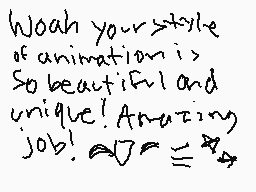 Woah your style
of animation is
so beautiful and
unique! Amazing
job!